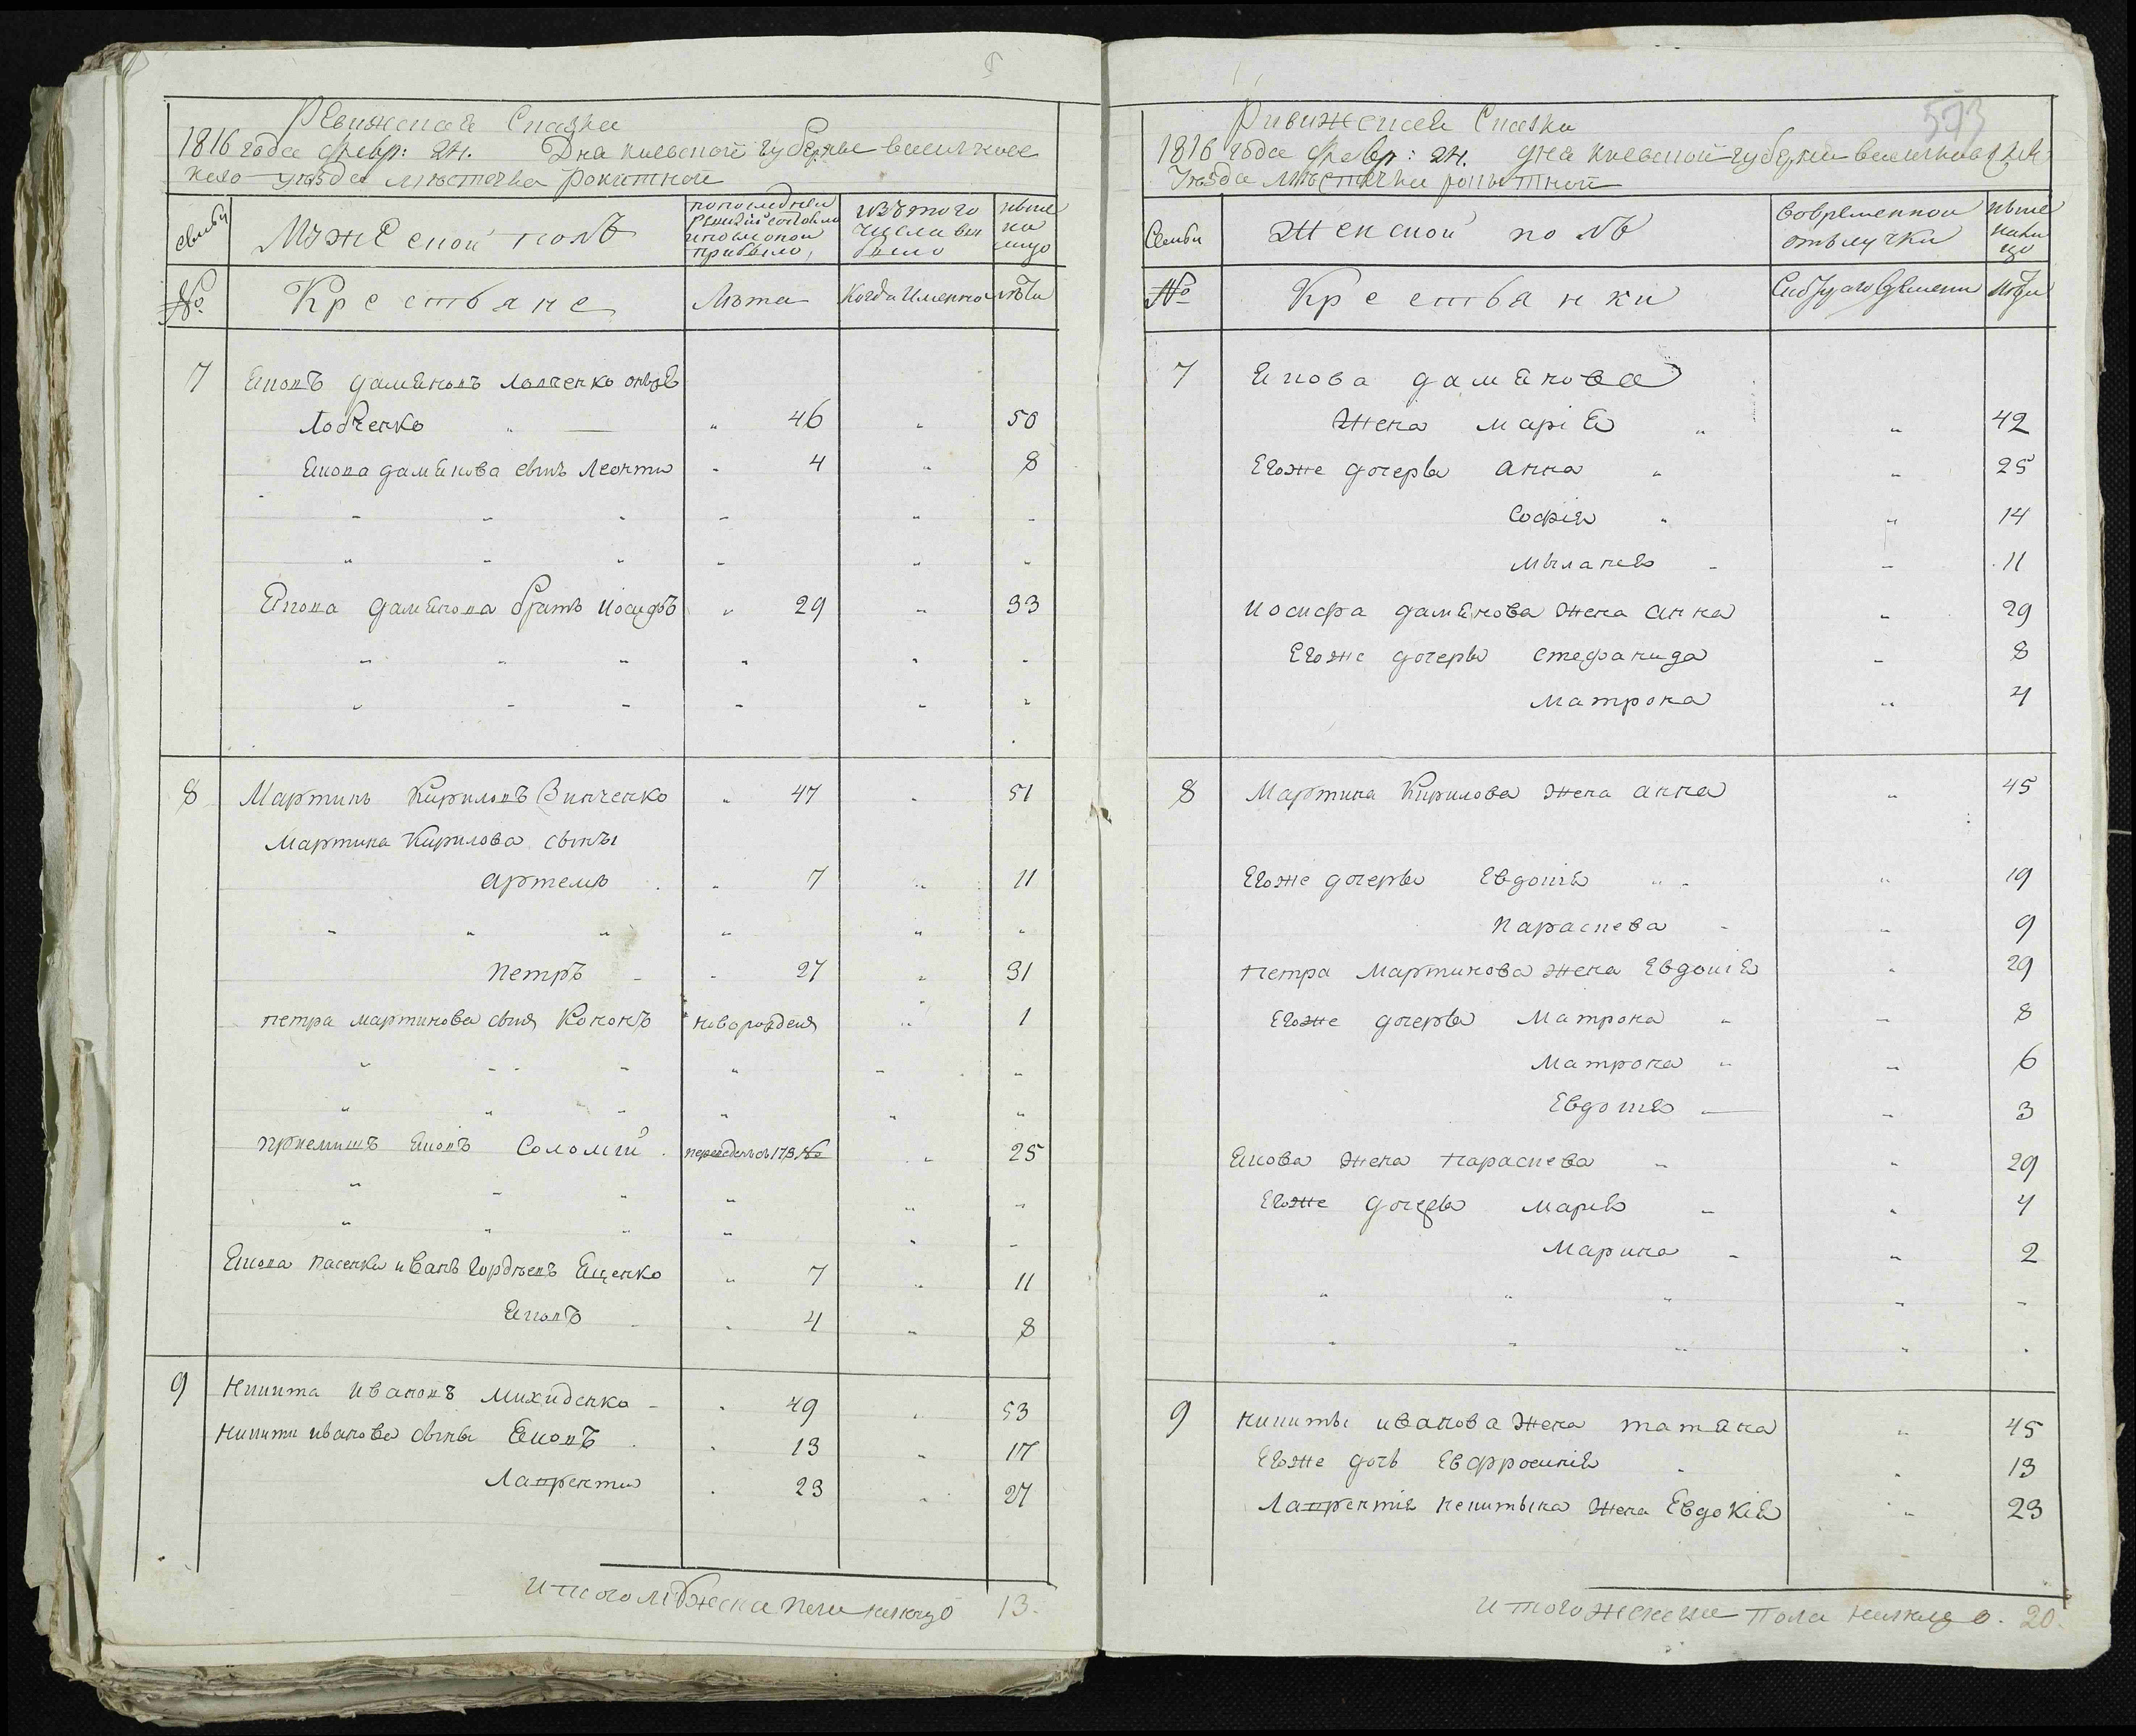 Ревижская Сказка
1816 года Февр: 24. Дня Киевской губернье василковс
кого уезда местечка Рокитной
Семьи
Мужеской полъ
попоследней
Ревизий состояло
и после оной
прибыло,
Изътого
числа вы
было
Ныне
на
лицо
№
Крестьяне
Лета
Когда Именно
лета
7
Яковъ дамяновъ Лобченко онъже
Лобченко " — " 46 " 50
Якова дамянова сынъ Леонти " 4 " 8
Якова дамянова братъ Иосифъ " 29 " 33
8
Мартинъ Кириловъ Винченко " 47 " 51
Мартина Кирилова сынъі
Артемъ " 7 " 11
Петръ " 27 " 31
петра мартинова сынъ Кононъ новорожденъ " 1
приемишъ Яковъ Соломій переведенъ съ 173 № " 25
Якова пасенки иванъ Гордеевъ Ященко " 7 " 11
Яковъ " 4 " 8
9
Никита Ивановъ Михиденко " 49 " 53
Никити иванова сыны Яковъ " 13 " 17
Лаврентий " 23 " 27
Итого мужеска пола налицо 13.
593
Ривижская Сказка
1816 года Февр: 24. дня Киевской губерни василковскаго
Уезда Местечка рокытной
Семьи
Женской полъ
Вовременной
отълучки
Ныне
нали
цо
№
Крестьянки
Скотораго времени
лета
7
Якова дамянова
Жена маріа " " 42
Егоже дочеры Анна " " 25
Софія " " 14
Мыланея " 11
Иосифа дамянова жена анна " 29
Егоже дочеры стефанида " 8
Матрона " 4
8
Мартина Кирилова жена анна " 45
Егоже дочеры Евдокія " " 19
Параскева " " 9
Петра Мартинова жена Евдокія " 29
Егоже дочеры Матрона " " 8
Матрона " " 6
Евдокія — " 3
Якова жена параскева " " 29
Егоже дочеры марія " " 4
Марина " " 2
9
никиты иванова жена татяна " 45
Егоже дочь Евфросинія " 13
Лаврентія никитына жена Евдокія " 23
Итого женска пола налицо. 20.